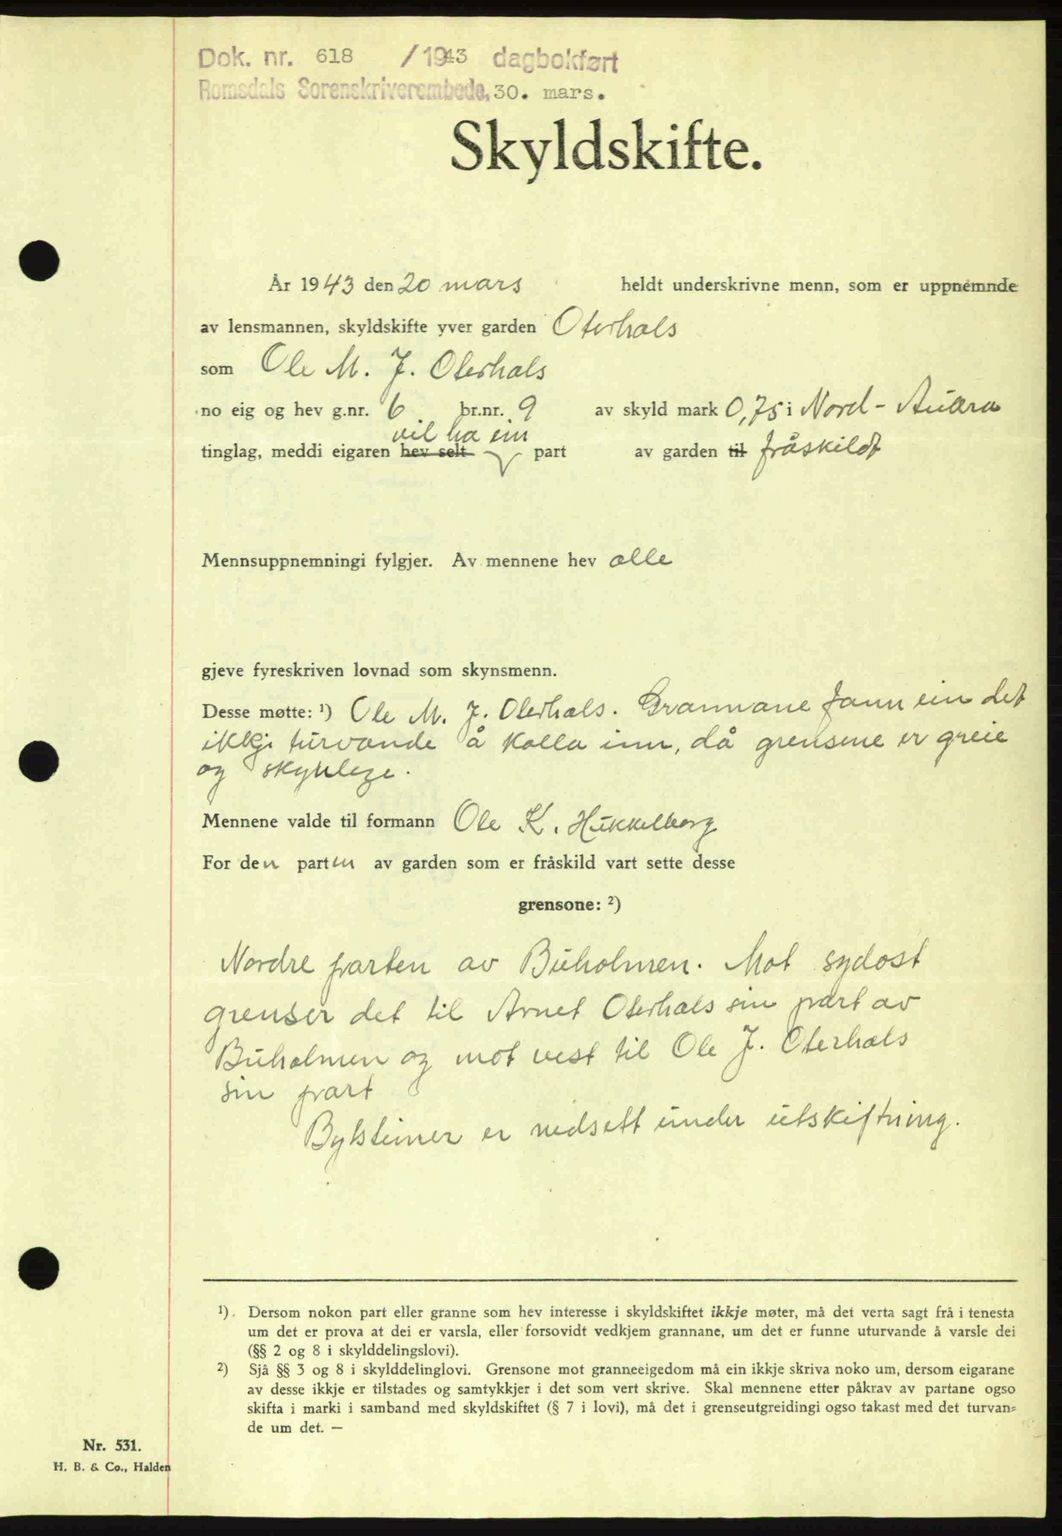 Dok. nr. 618 /1943 dagbokført
Romsdals Sorenskriverembede, 30. mars.
Skyldskifte.
År 1943 den 20 mars heldt underskrivne menn, som er uppnemnde
av lensmannen, skyldskifte yver garden Oterhals
som Ole M. J. Oterhals
no eig og hev g.nr. 6 br.nr. 9 av skyld mark 0,75 i Nord-Aukra
vil ha ein
tinglag, meddi eigaren hev selt part av garden til fråskildt
Mennsuppnemningi fylgjer. Av mennene hev alle
gjeve fyreskriven lovnad som skynsmenn.
Desse møtte: ¹) Ole M. J. Oterhals. Grannane fann ein det
ikkje turvande å kalla inn, då grensene er greie
og skynlege.
Mennene valde til formann Ole K. Hukkelberg
For den parten av garden som er fråskild vart sette desse
grensone: ²)
Nordre parten av Buholmen. Mot sydost
grenser det til Arnet Oterhals sin part av
Buholmen og mot vest til Ole J. Oterhals
sin part
Bytsteiner er nedsett under utskiftning.
¹). Dersom nokon part eller granne som hev interesse i skyldskiftet ikkje møter, må det verta sagt frå i tenesta
um det er prova at dei er varsla, eller forsovidt vedkjem grannane, um det er funne uturvande å varsle dei
(§§ 2 og 8 i skylddelingslovi).
²) Sjå §§ 3 og 8 i skylddelinglovi. Grensone mot granneeigedom må ein ikkje skriva noko um, dersom eigarane
av desse ikkje er tilstades og samtykkjer i det som vert skrive. Skal mennene etter påkrav av partane ogso
skifta i marki i samband med skyldskiftet (§ 7 i lovi), må det i grenseutgreidingi ogso takast med det turvan-
de um det. —
Nr. 531.
H. B. & Co., Halden